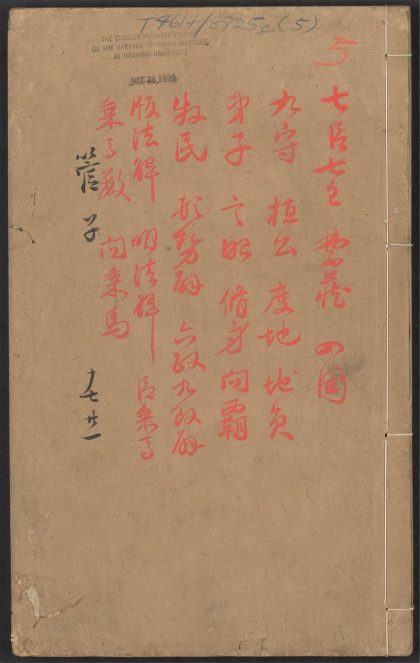 T4614/8725c(5)
THE CHINESE-JAPANESE LIBRARY
OF THE HARVARD-YENCHING INSTITUTE
AT HARVARD UNIVERSITY
5
七臣七主 禁藏 國
九守 桓公 度地 地員
弟子 言昭 脩身 問霸
牧民 形勢解 立政九敗解
版法解 明法解 臣乘馬
乘馬數 問乘馬
管子 十七 廿一